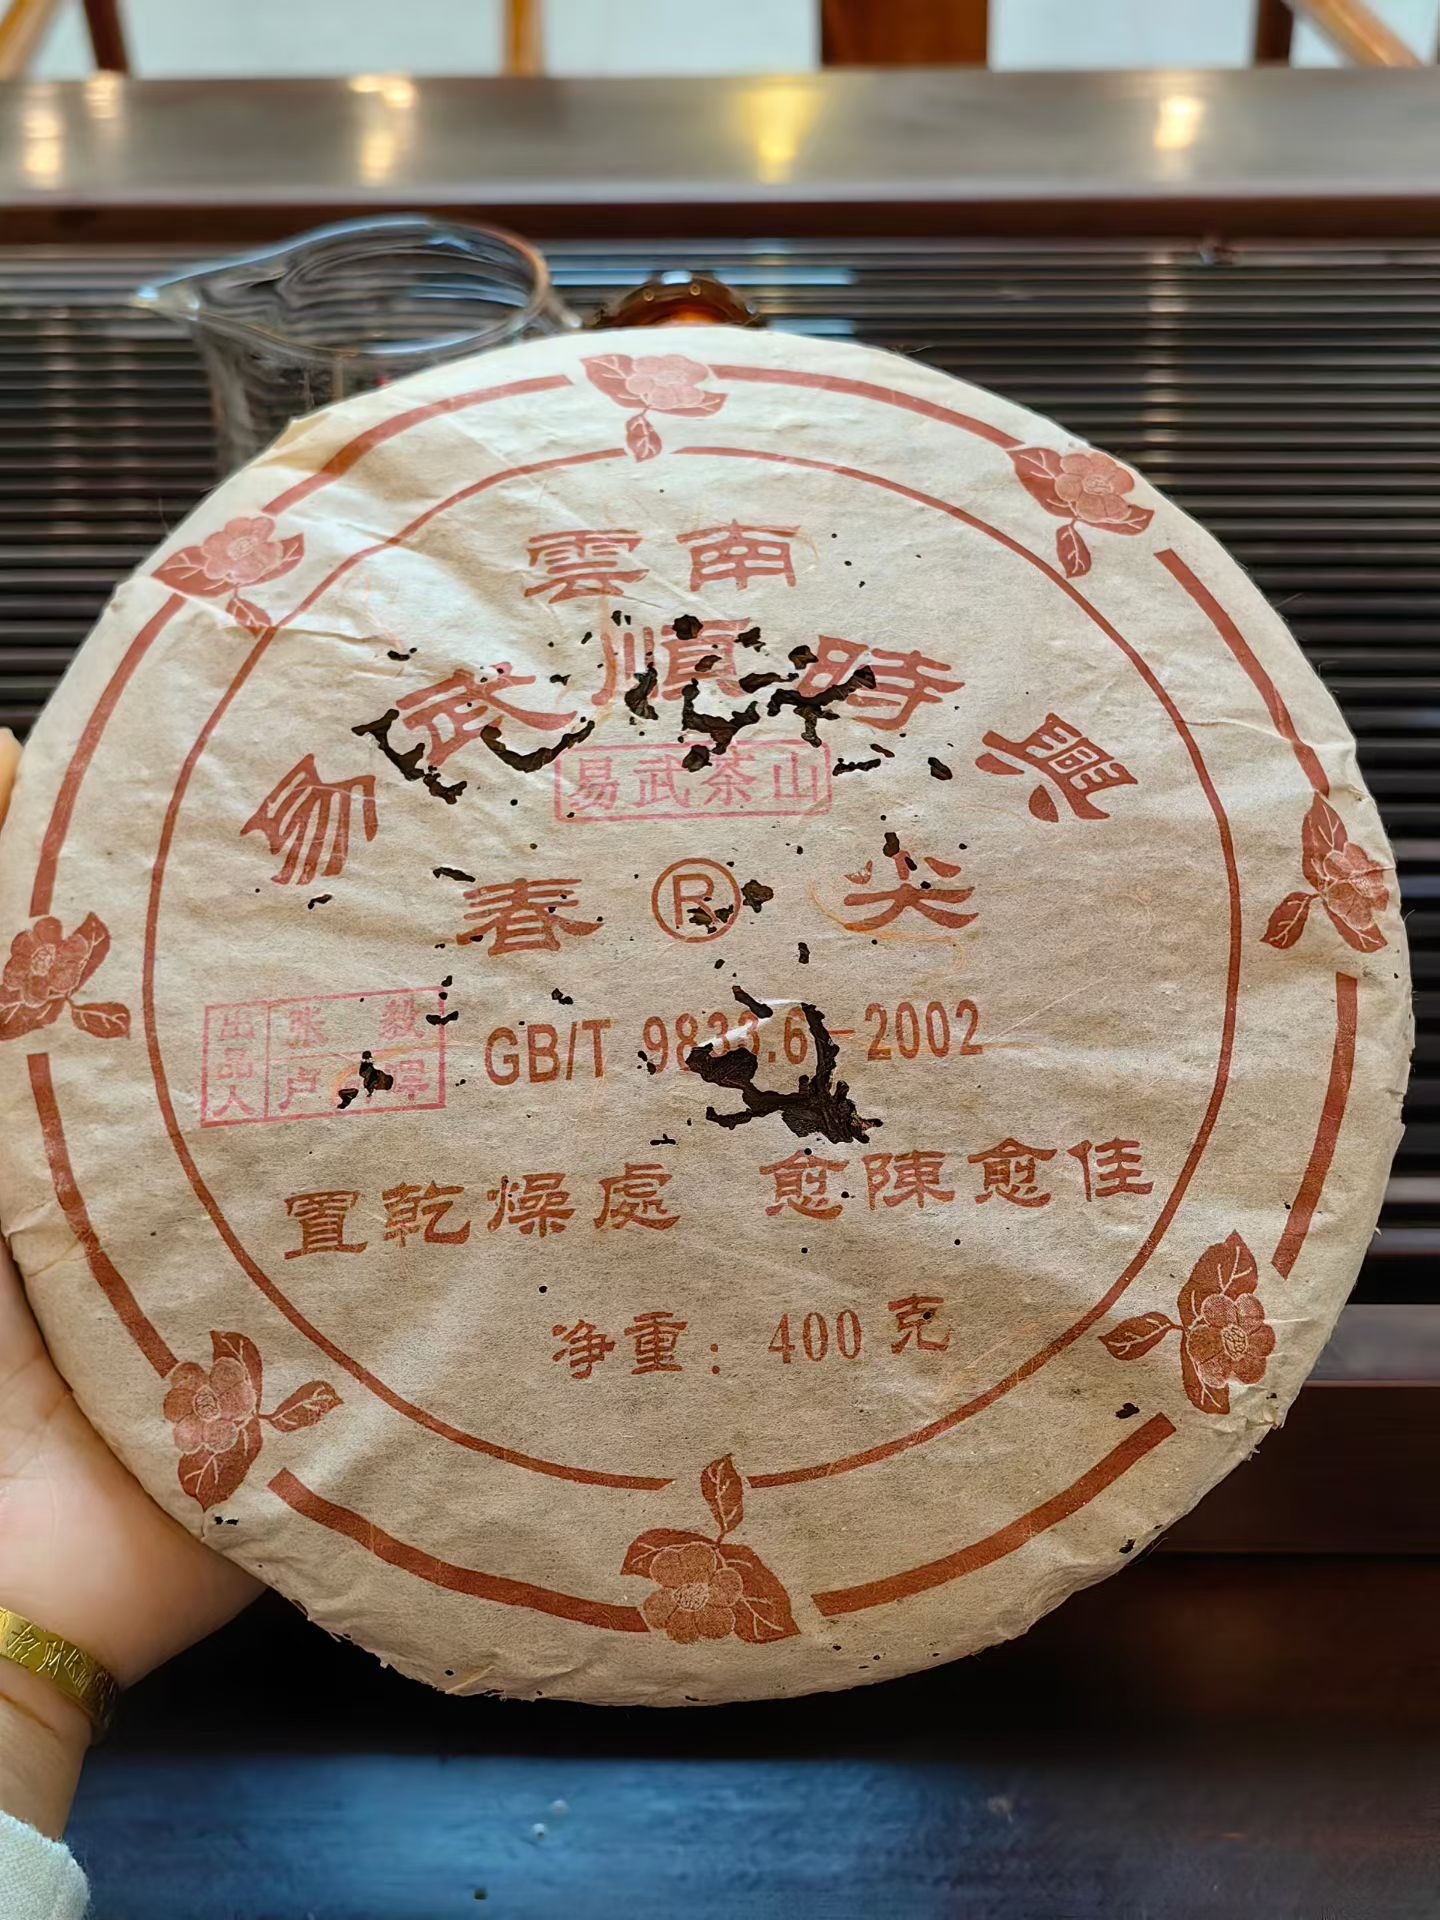 雲南
易武順時興
易武茶山
春 ® 尖
出品人 张毅
卢
GB/T 9833.6-2002
置乾燥處 愈陳愈佳
净重：400克
招财